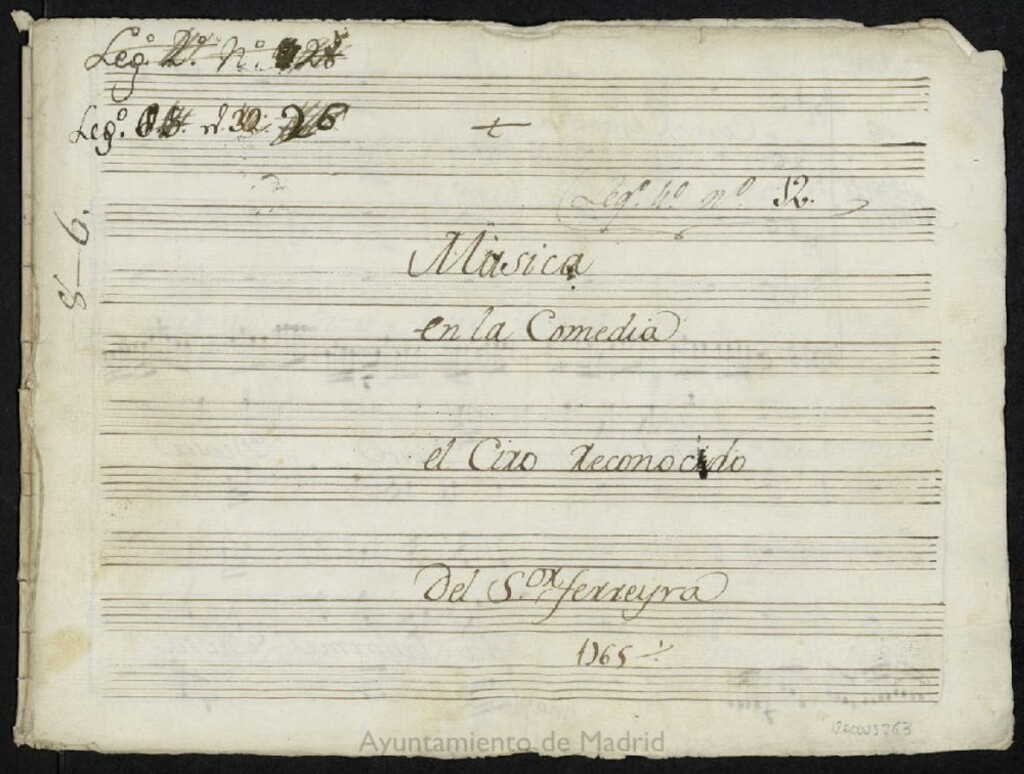 Leg.º 2.º N.º
Leg.º
Leg.º 4.º nº. 12.
8–6.
Musica
en la Comedia
el Ciro Reconocido
Del S.or ferreyra
1765
Ayuntamiento de Madrid